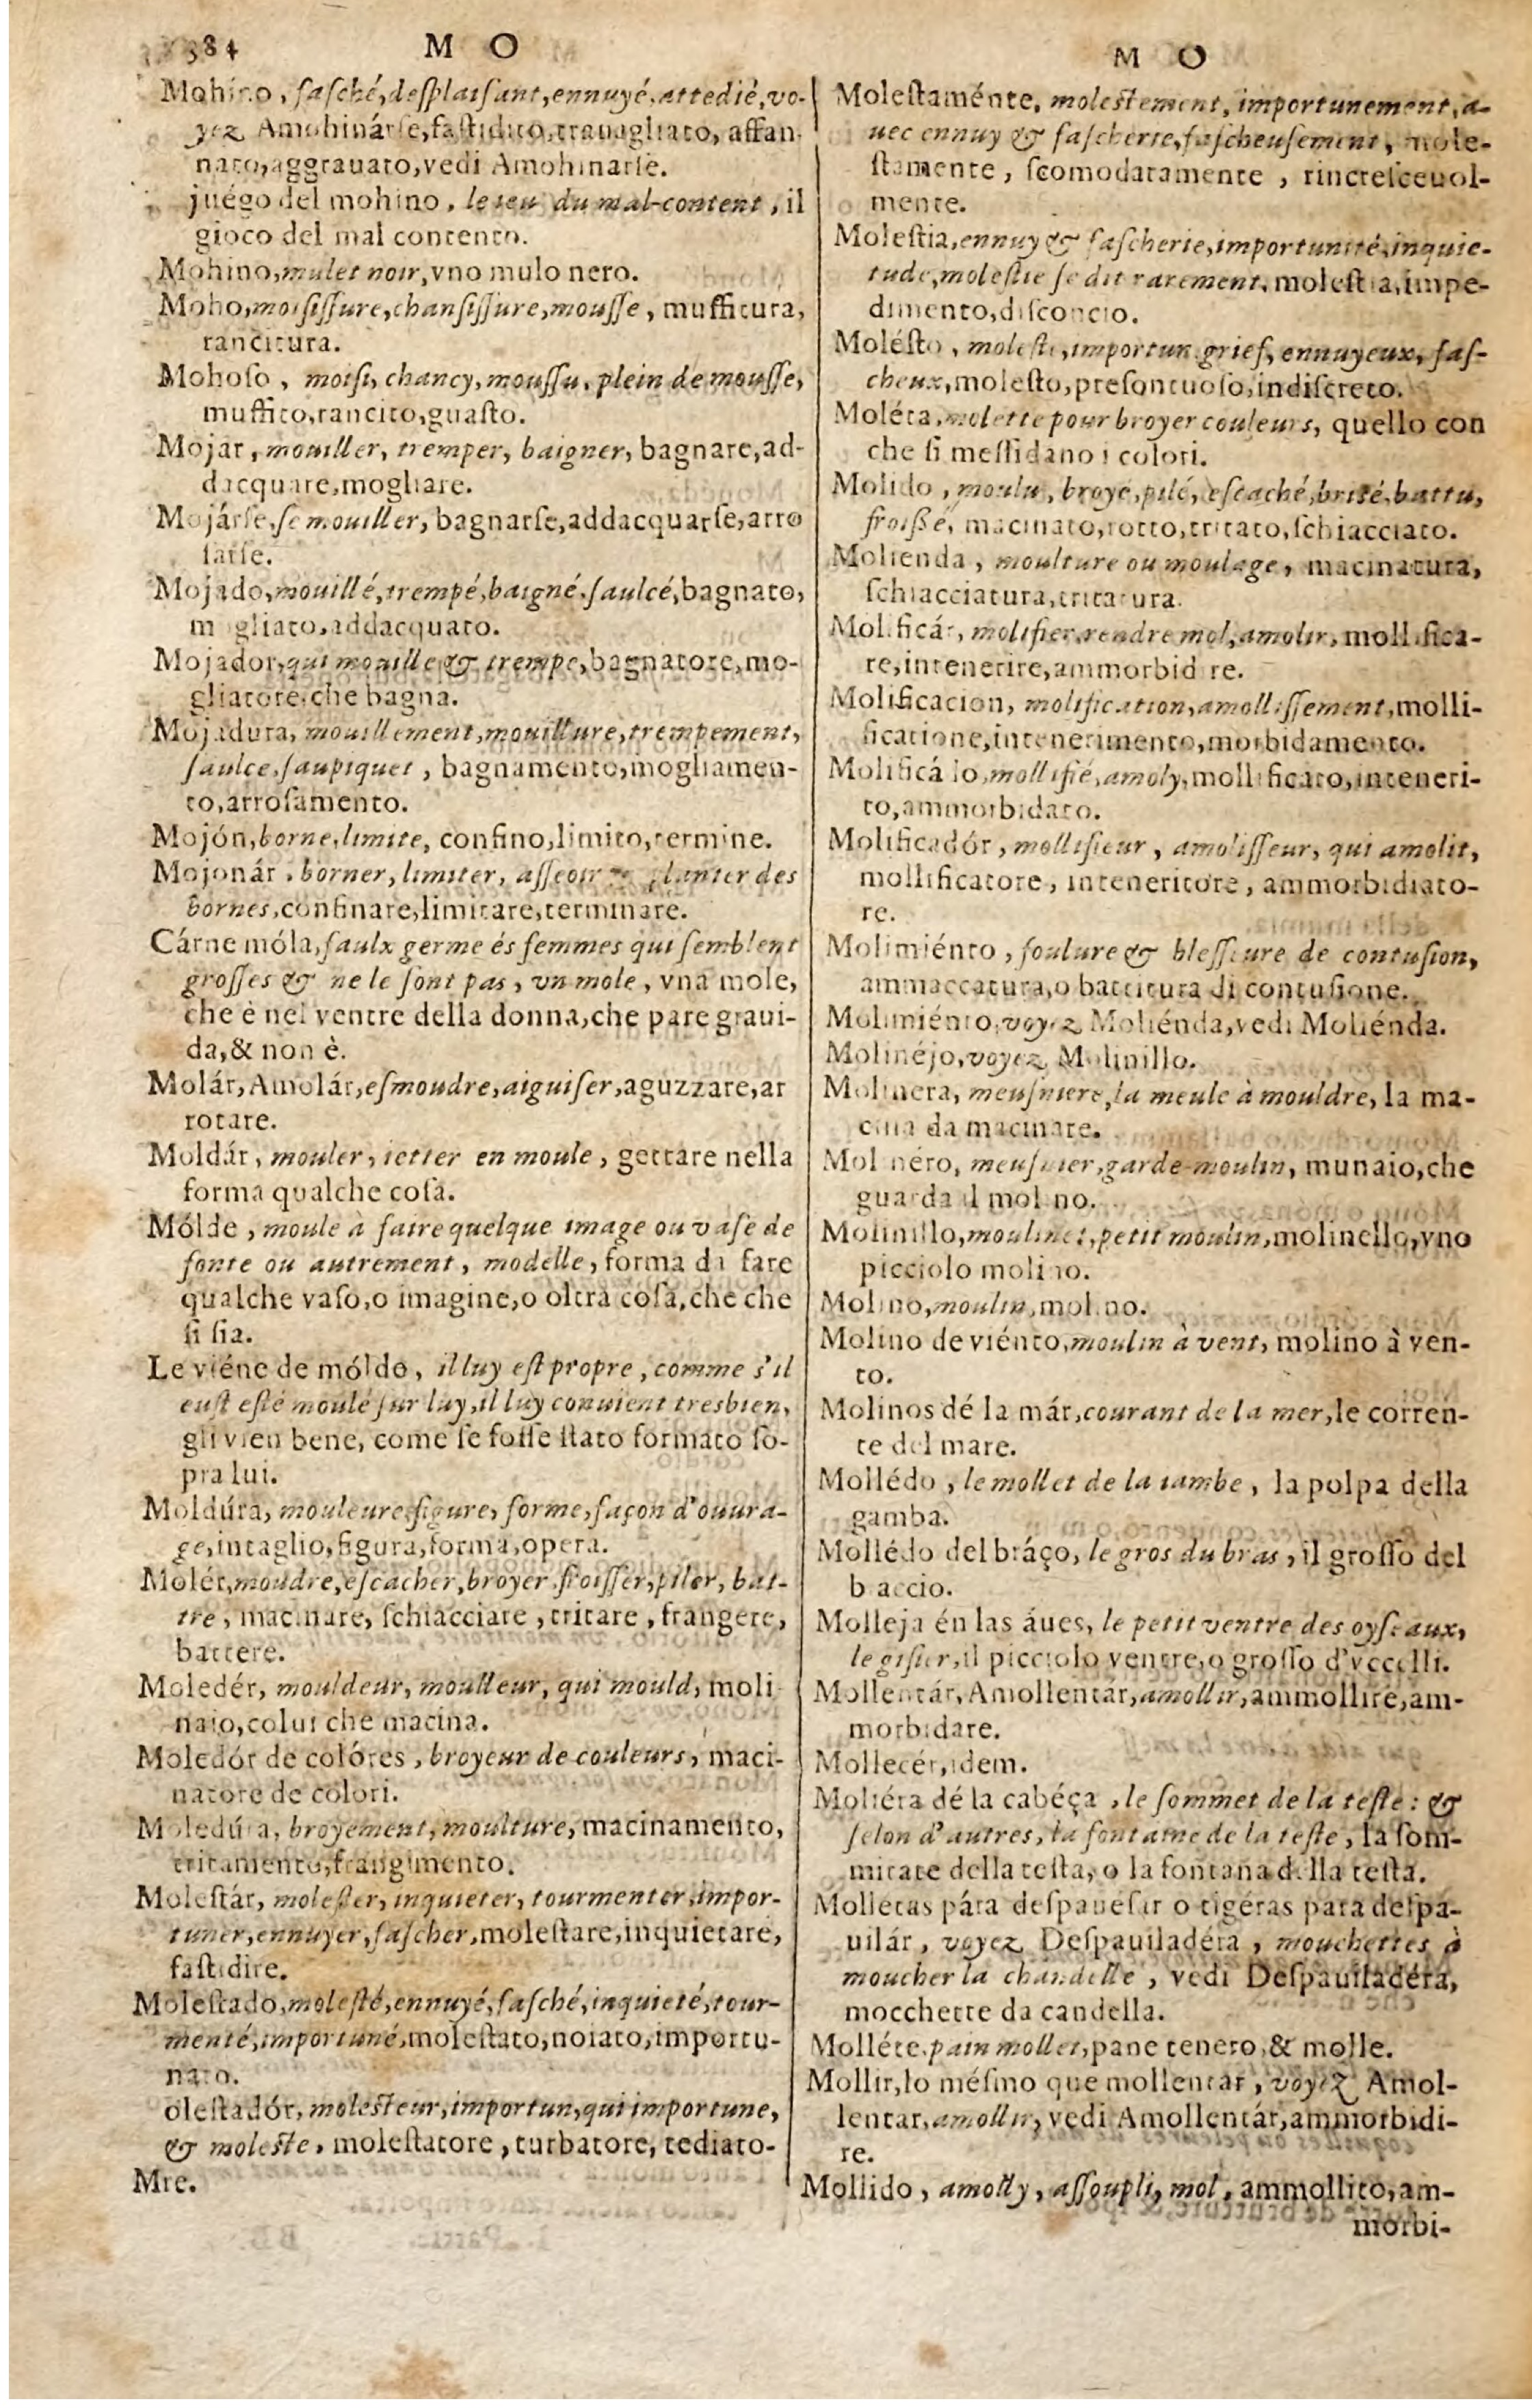 384 M O
Mohino, faſché, deſplaiſant, ennuyé, attedié, vo-
yez Amohinárſe, faſtidito, trauagliato, affan-
nato, aggrauato, vedi Amohinarſe.
juégo del mohino, le ieu du mal-content, il
gioco del mal contento.
Mohino, mulet noir, vno mulo nero.
Moho, moiſiſſure, chanſiſſure, mouſſe, muffitura,
rancitura.
Mohoſo, moiſi, chancy, mouſſu, plein de mouſſe,
muffito, rancito, guaſto.
Mojar, mouiller, tremper, baigner, bagnare, ad-
dacquare, mogliare.
Mojárſe, ſe mouiller, bagnarſe, addacquarſe, arro
ſarſe.
Mojado, mouillé, trempé, baigné, ſaulcé, bagnato,
mogliato, addacquato.
Mojador, qui mouille & trempe, bagnatore, mo-
gliatore, che bagna.
Mojadura, mouillement, mouillure, trempement,
ſaulce, ſaupiquet, bagnamento, mogliamen-
to, arroſamento.
Mojón, borne, limite, confino, limito, termine.
Mojonár, borner, limiter, aſſeoir & planter des
bornes, confinare, limitare, terminare.
Cárne móla, faulx germe és femmes qui ſemblent
groſſes & ne le ſont pas, vn mole, vna mole,
che è nel ventre della donna, che pare graui-
da, & non è.
Molár, Amolár, eſmoudre, aiguiſer, aguzzare, ar
rotare.
Moldár, mouler, ietter en moule, gettare nella
forma qualche coſa.
Mólde, moule à faire quelque image ou vaſe de
fonte ou autrement, modelle, forma di fare
qualche vaſo, o imagine, o oltra coſa, che che
ſi ſia.
Le viéne de móldo, il luy eſt propre, comme s'il
euſt eſté moulé ſur luy, il luy conuient tresbien,
gli vien bene, come ſe foſſe ſtato formato ſo-
pra lui.
Moldúra, mouleure, figure, forme, façon d'ouura-
ge, intaglio, figura, forma, opera.
Molér, moudre, eſcacher, broyer, froiſſer, piler, bat-
tre, macinare, ſchiacciare, tritare, frangere,
battere.
Moledér, mouldeur, moulleur, qui mould, moli
naio, colui che macina.
Moledór de colóres, broyeur de couleurs, maci-
natore de colori.
Moledúra, broyement, moulture, macinamento,
tritamento, frangimento.
Moleſtár, moleſter, inquieter, tourmenter, impor-
tuner, ennuyer, faſcher, moleſtare, inquietare,
faſtidire.
Moleſtado, moleſté, ennuyé, faſché, inquieté, tour-
menté, importuné, moleſtato, noiato, importu-
nato.
oleſtadór, moleſteur, importun, qui importune,
& moleſte, moleſtatore, turbatore, tediato-
Mre.
M O
Moleſtaménte, moleſtement, importunement, a-
uec ennuy & faſcherie, faſcheuſement, mole-
ſtamente, ſcomodatamente, rincreſceuol-
mente.
Moleſtia, ennuy & faſcherie, importunité, inquie-
tude, moleſtie ſe dit rarement, moleſtia, impe-
dimento, diſconcio.
Moléſto, moleſte, importun, grief, ennuyeux, faſ-
cheux, moleſto, preſontuoſo, indiſcreto.
Moléta, molette pour broyer couleurs, quello con
che ſi meſſidano i colori.
Molido, moulu, broyé, pilé, eſcaché, briſé, battu,
froiſſé, macinato, rotto, tritato, ſchiacciato.
Molienda, moulture ou moulage, macinatura,
ſchiacciatura, tritatura.
Molificár, molifier, rendre mol, amolir, mollifica-
re, intenerire, ammorbidire.
Molificacion, molification, amolliſſement, molli-
ficatione, intenerimento, morbidamento.
Molificádo, mollifié, amoly, mollificato, inteneri-
to, ammorbidato.
Molificadór, mollifieur, amoliſſeur, qui amolit,
mollificatore, inteneritore, ammorbidiato-
re.
Molimiénto, foulure & bleſſeure de contuſion,
ammaccatura, o battitura di contuſione.
Molimiénto, voyez Moliénda, vedi Moliénda.
Molinéjo, voyez Molinillo.
Molinera, meuſniere, la meule à mouldre, la ma-
cina da macinare.
Molinéro, meuſnier, garde-moulin, munaio, che
guarda il molino.
Molinillo, moulinet, petit moulin, molinello, vno
picciolo molino.
Molino, moulin, molino.
Molino de viénto, moulin à vent, molino à ven-
to.
Molinos dé la már, courant de la mer, le corren-
te del mare.
Mollédo, le mollet de la iambe, la polpa della
gamba.
Mollédo del bráço, le gros du bras, il groſſo del
braccio.
Molleja én las áues, le petit ventre des oyſeaux,
le giſier, il picciolo ventre, o groſſo d'vccelli.
Mollentár, Amollentár, amollir, ammollire, am-
morbidare.
Mollecér, idem.
Molléra dé la cabéça, le ſommet de la teſte: &
ſelon d'autres, la fontaine de la teſte, la ſom-
mitate della teſta, o la fontana della teſta.
Molletas pára deſpaueſar o tigéras para deſpa-
uilár, voyez Deſpauiladéra, mouchettes à
moucher la chandelle, vedi Deſpauiladéra,
mocchette da candella.
Molléte, pain mollet, pane tenero, & molle.
Mollir, lo méſmo que mollentar, voyez Amol-
lentar, amollir, vedi Amollentár, ammorbidi-
re.
Mollido, amolly, aſſoupli, mol, ammollito, am-
morbi-